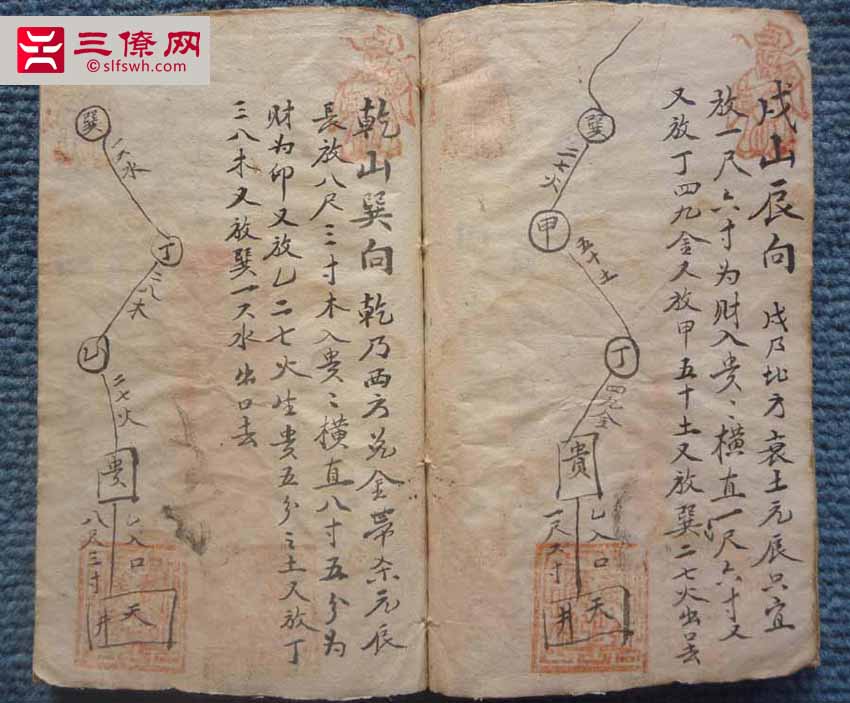 三僚网
©slfswh.com
戌山辰向 戌乃北方衰土元辰只宜
放一尺六寸为财入贵〻横直一尺六寸又
又放丁四九金又放甲五十土又放巽二七火出口去
巽
二七火
甲
五十土
丁
四九金
貴
乙入口
一尺六寸
天井
乾山巽向 乾乃西方 金帶 元辰
長放八尺三寸木入貴〻橫直八寸五分为
财为印又放乙二七火生貴五分之土又放丁
三八木又放巽一六水出口去
巽
一六水
丁
三八木
乙
二七火
贵
乙入口
八尺三寸
天井